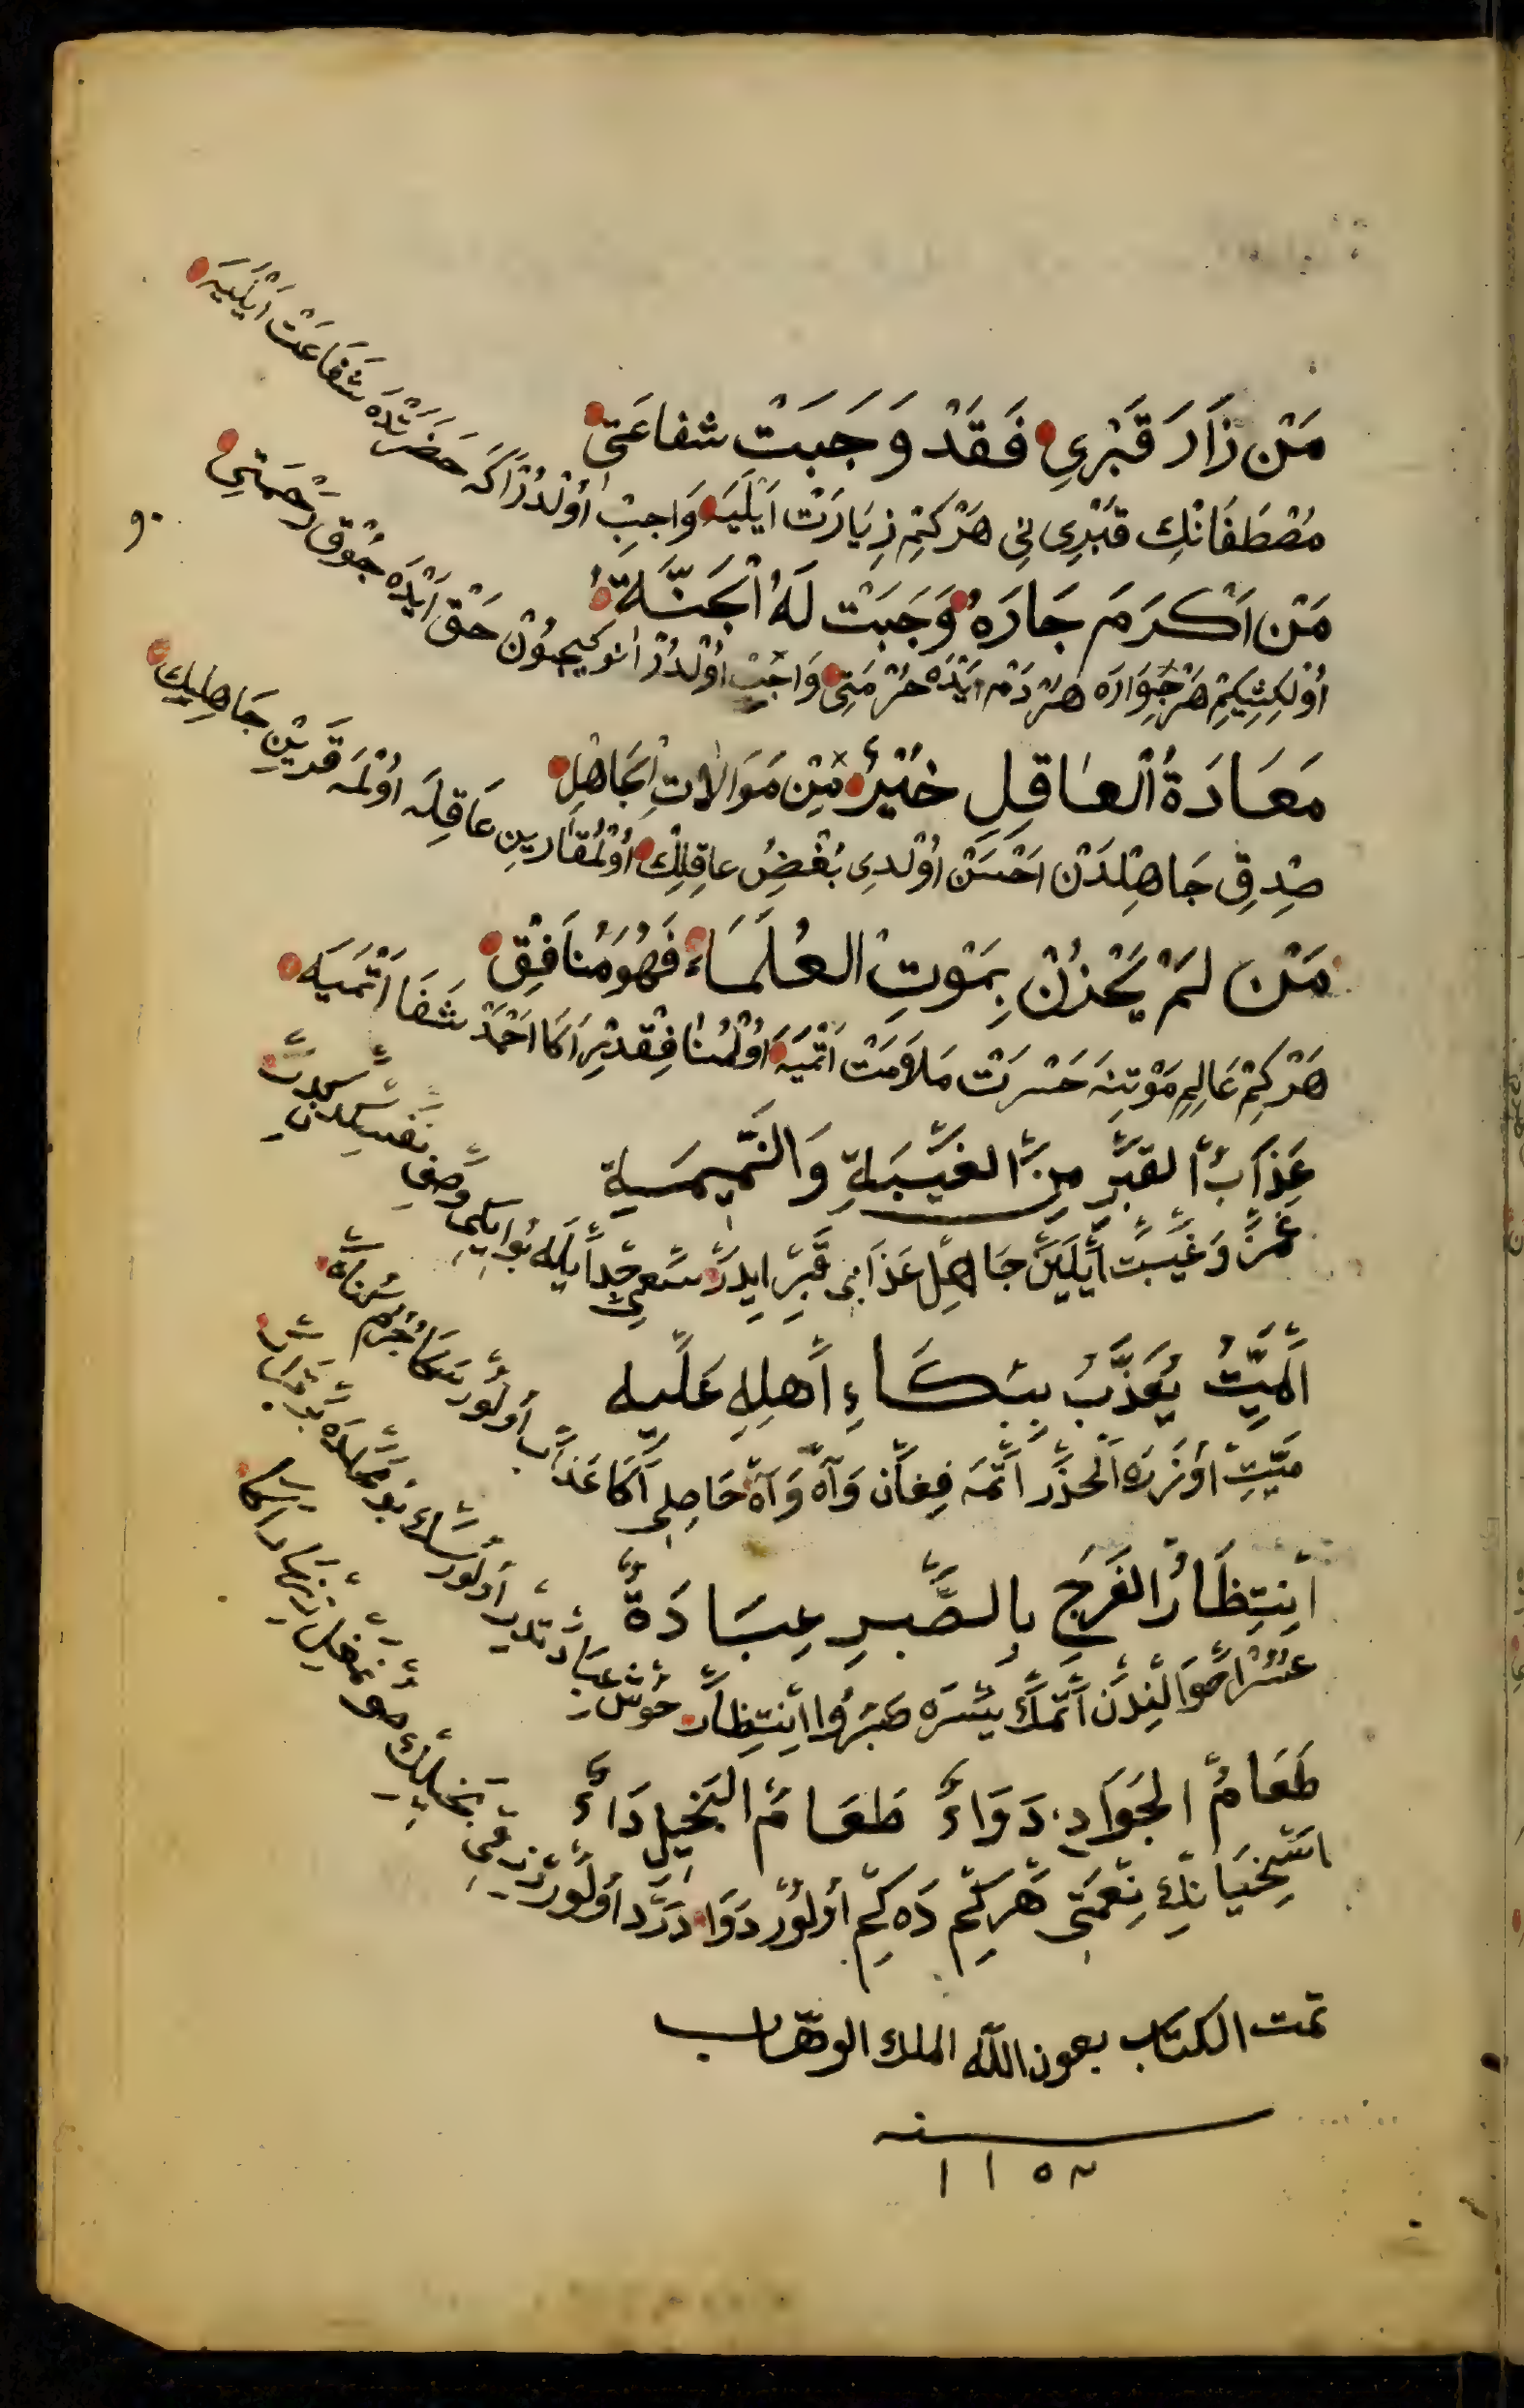 مَنْ زَارَ قَبْرِي فَقَدْ وَجَبَتْ شفاعَتي
مُصْطَفَانْكِ قَبْرِى نِي هَرْكِمْ زِيَارَتْ اَيْلَيَه وَاجِبْ اُوْلدُرْ اَكَه حَضْرَتْدَه شَفَاعَتْ اَيْلَيَه
مَنْ اَكْرَمَ جَارَهُ وَجَبَتْ لَهُ الْجَنَّةُ
اُوْلكِشِيكِمْ هَرْ جِوَارَه هَرْدَم اَيْدَه حُرْمَتِي وَاجِبْ اُوْلدُرْ انو كيچون حَقْ اَيْدَه جُوْق رَحْمَتِي
مَعَادَةُ الْعَاقِلِ خَيْرٌ مِّنْ مَوَالَاتِ الْجَاهِلِ
صِدِقِ جَاهِلْدَنْ اَحْسَنْ اُوْلدِى بُغْضِ عاقِلِكْ اُوْلمُقَارِينِ عَاقِلَه اُوْلمَه قَرِيْنِ جَاهِلِيكْ
مَنْ لَمْ يَحْزُنْ بِمَوْتِ الْعُلَمَاءِ فَهُوَ مُنَافِقْ
هَرْكِمْ عَالِم مَوْتِنَه حَسْرَتْ مَلَامَتْ اَتْمَيَه اُوْلمُنَافِقْدِرْ اَكَا اَحْمَدْ شَفَا اَتْمَيَه
عَذَابُ القَبْرِ مِنَ الغِيْبَةِ وَالنَّمِيمَةِ
غَمْزُ وَغِيْبَتْ اَيْلَيَنْ جَاهِلْ عَذَابِى قَبْرِ ايدَرْ سَعى جِدْ اَيلَه بُو ايكى وَصفِ نَفسِكدن
اَلمَيِّتُ يُعَذَّبُ بِبُكَاءِ اَهلِهِ عَلَيه
مَيِّتِ اُوزَره اَلحَذَر اَتْمَه فِغَان وَآه وَآه حَاصِلِى اَكَا عَذَاب اُولُور سَكَا جُرم كُنَاه
اِنتِظَارُ الفَرَجِ بِالصَّبرِ عِبَادَةٌ
عُسْر اَحوَالْندَن اَتمَك يُسْرَه صَبْرُوا اِنتِظَار خُوش عِبَادَتدر
طَعَامُ الجَوَادِ دَوَاءٌ طَعَامُ البَخِيلِ دَاءٌ
اسخِيَانِك نِعمَتى هَركِم دَه كِم اُولُور دَوَا دَرد اُولُور رزقِى بَخِيلِك
تمت الكتاب بعون الله الملك الوهّاب
سنه